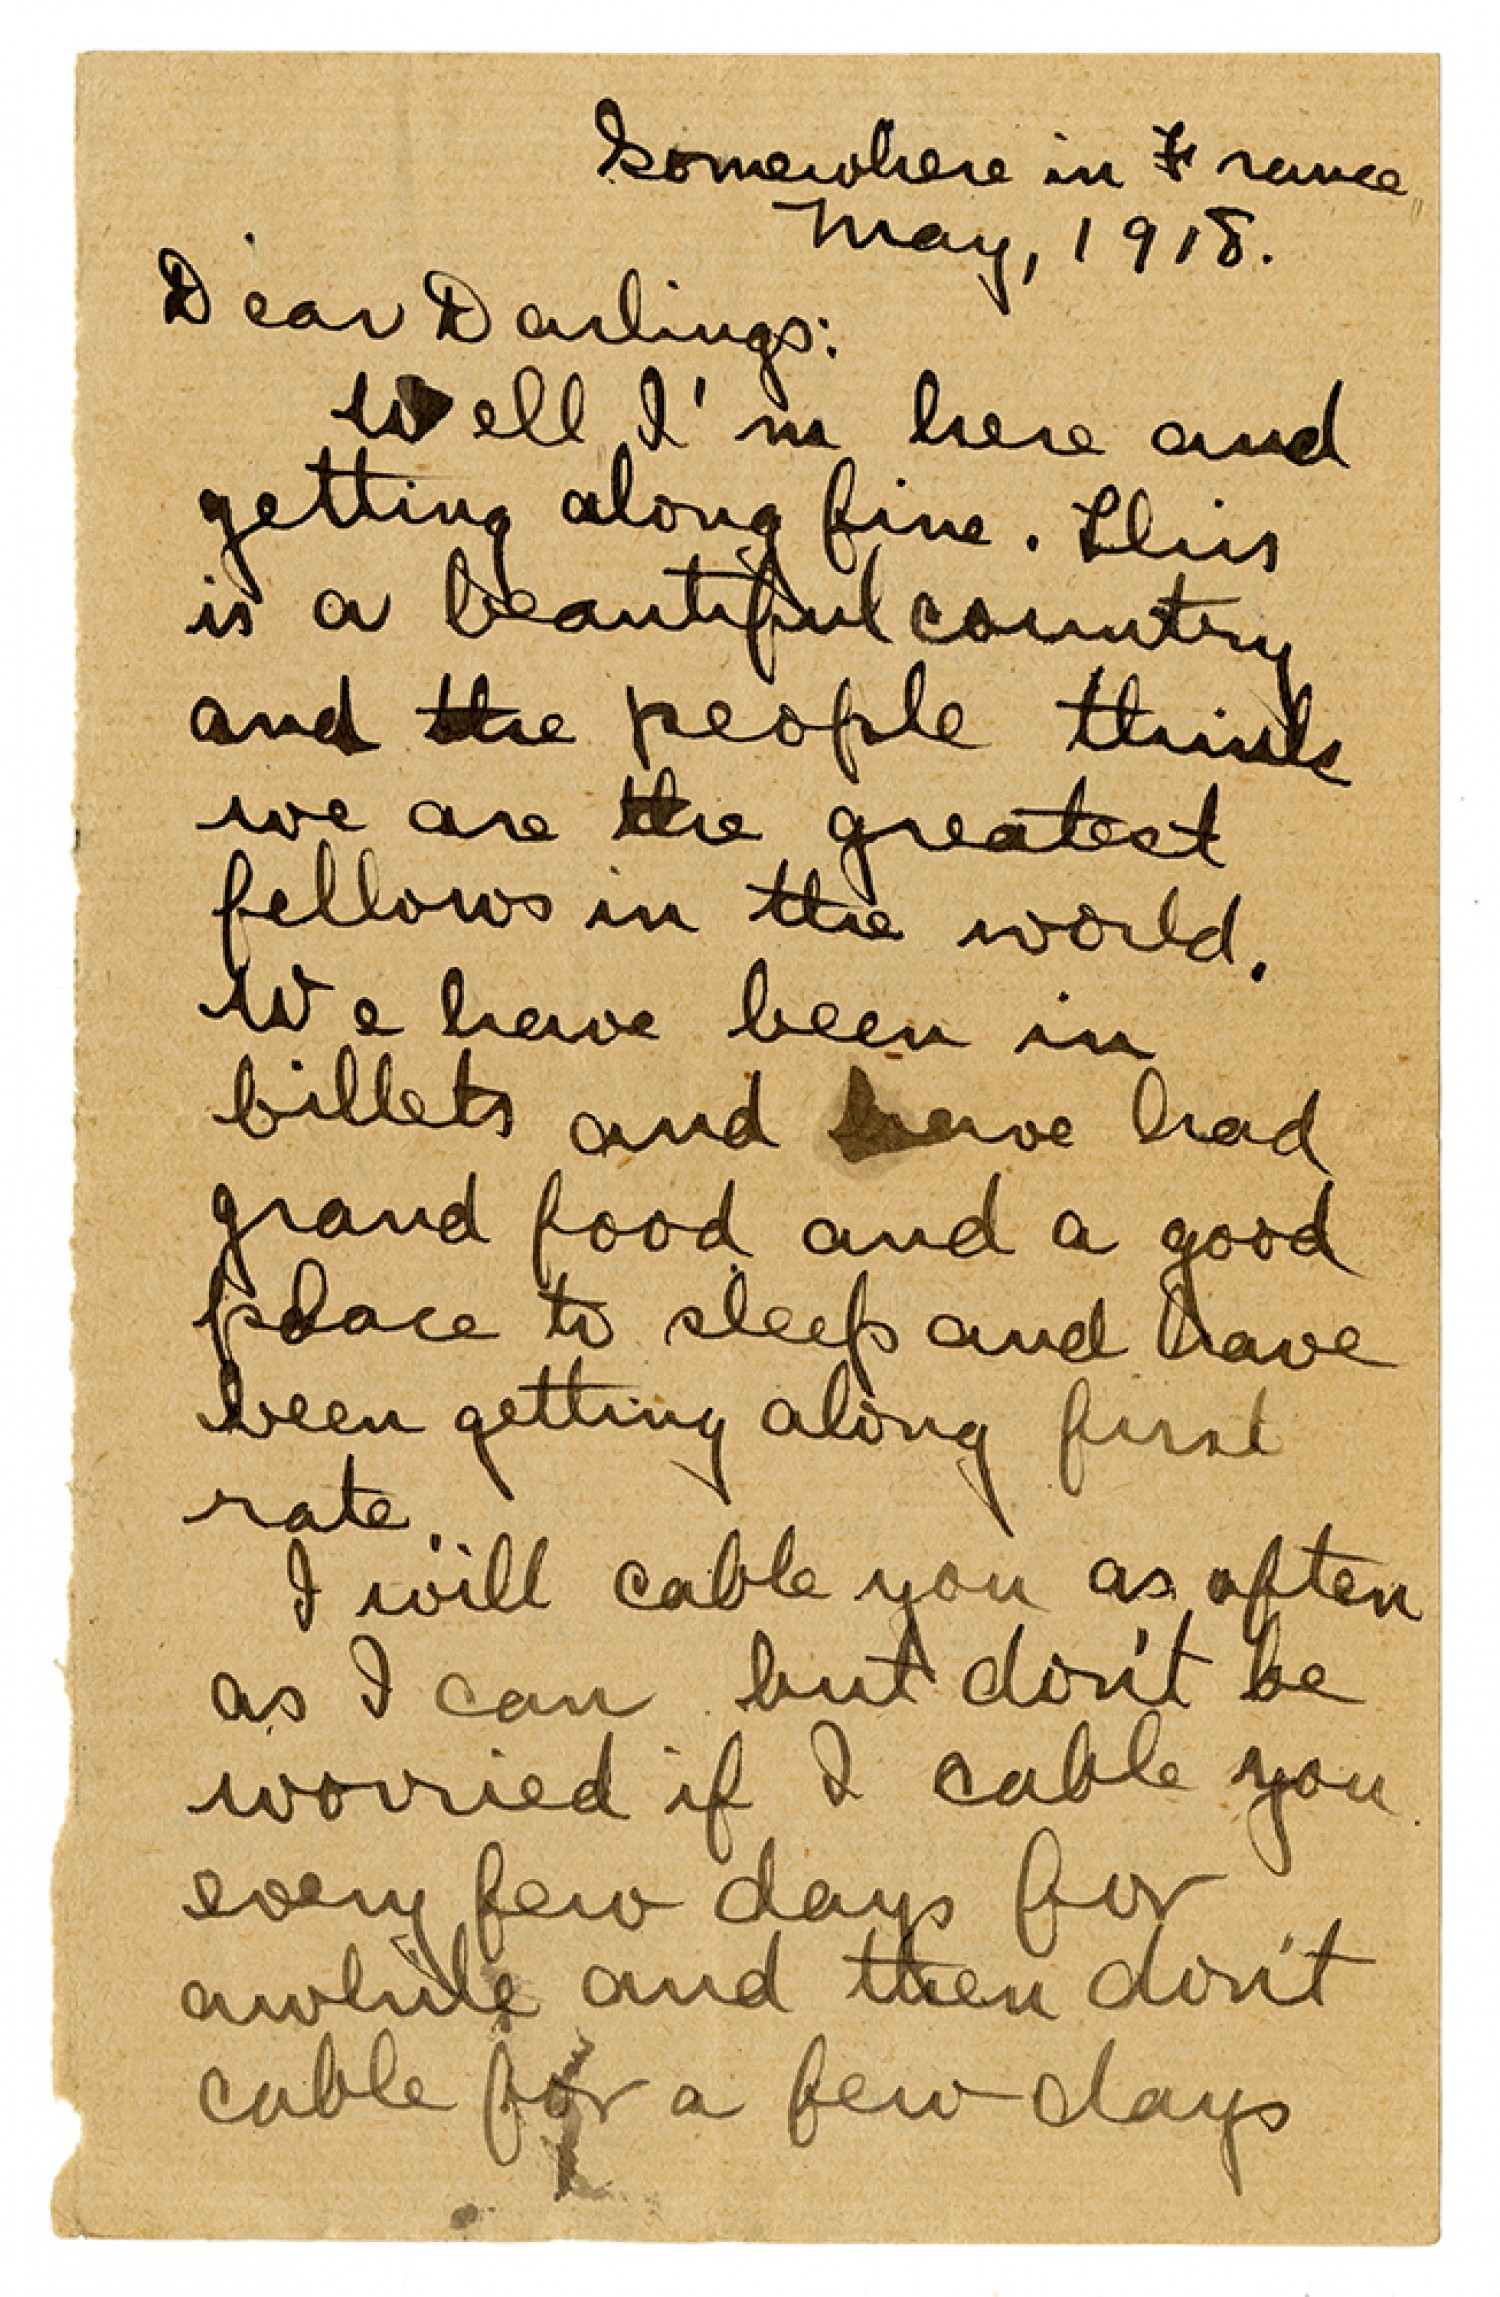 Somewhere in France,
May, 1918.
Dear Darlings:
Well I'm here and
getting along fine. This
is a beautiful country
and the people think
we are the greatest
fellows in the world.
We have been in
billets and have had
grand food and a good
place to sleep and have
been getting along first
rate.
I will cable you as often
as I can but don't be
worried if I cable you
every few days for
awhile and then don't
cable for a few days